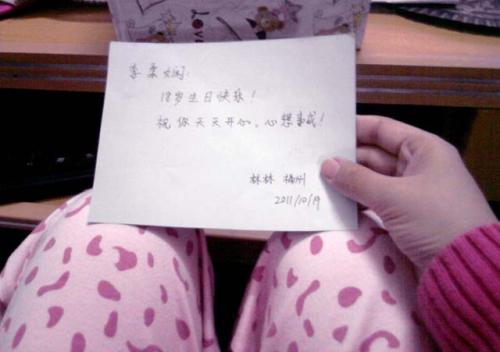 Love
李柔娴:
18岁生日快乐!
祝你天天开心。心想事成!
林林 梅州
2011/10/19